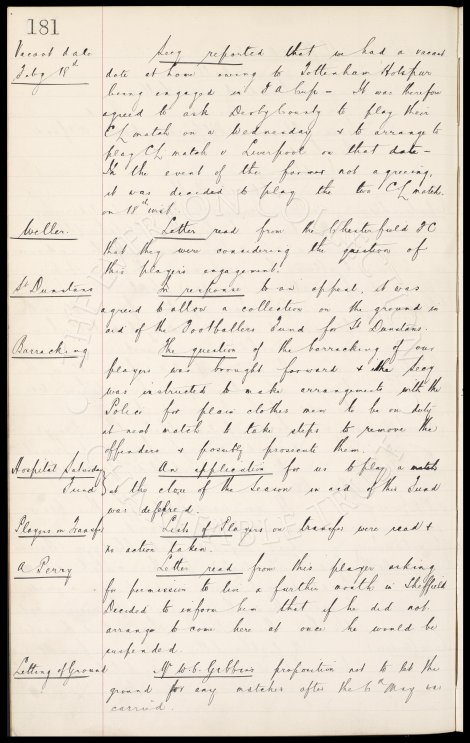 181
Vacant date Secy reported that we had a vacant
Feby 18th date at home owing to Tottenham Hotspur
being engaged in F A Cup - It was therefore
agreed to ask Derby County to play their
CL match on a Wednesday & to arrange to
play CL match v Liverpool on that date -
In the event of the former not agreeing,
it was decided to play the two CL match
on 18th inst.
Weller. Letter read from the Chesterfield FC
that they were considering the question of
this players engagement.
St Dunstans In response to an appeal, it was
agreed to allow a collection on the ground in
aid of the Footballers Fund for St Dunstans.
Barracking The question of the barracking of our
players was brought forward & the Secy
was instructed to make arrangements with the
Police for plain clothes men to be on duty
at next match to take steps to remove the
offenders & possibly prosecute them.
Hospital Saturday An application for us to play a match
Fund at the close of the Season in aid of this Fund
was deferred.
Players on Transfer Lists of Players on transfer were read &
no action taken.
A Perry Letter read from this player asking
for permission to live a further month in Sheffield
Decided to inform him that if he did not
arrange to come here at once he would be
suspended.
Letting of Ground Mr W.C. Gibbins proposition not to let the
ground for any matches after the 6th May was
carried.